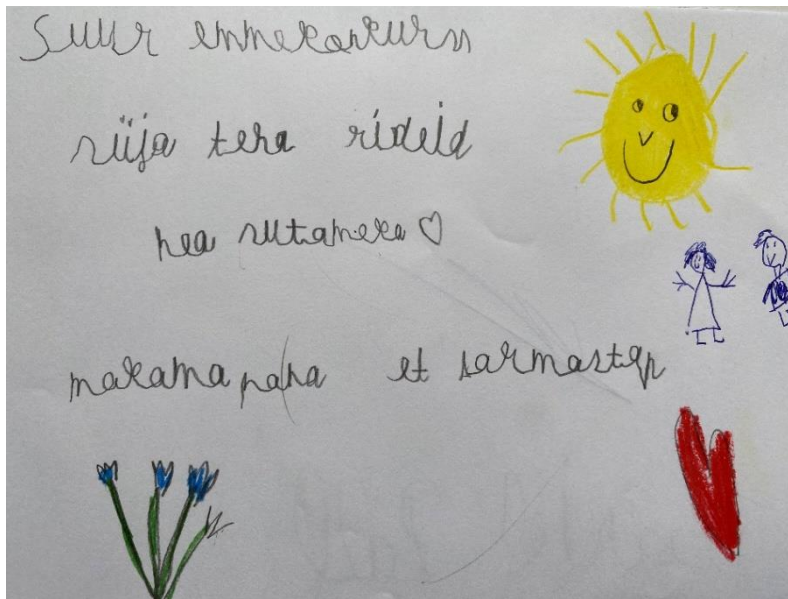 Suur emmekonkurss
siija teha rideid
hea sutameka ♡
makama papa et sarmastap